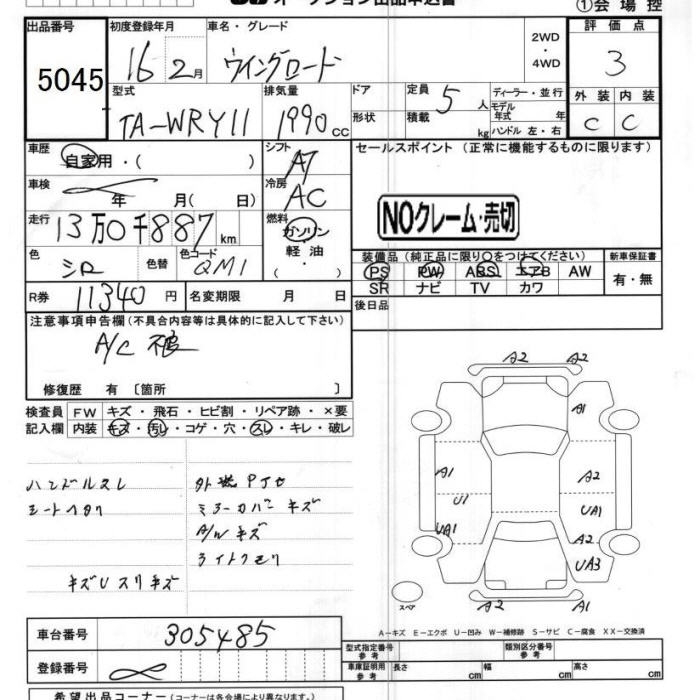 オークション出品申込書
①会場控
出品番号 5045
初度登録年月 16 2月
車名・グレード ウイングロード
2WD・4WD
評価点 3
型式 TA-WRY11
排気量 1990 cc
ドア 形状
定員 5 人
積載 kg
ディーラー・並行
モデル年式 年
ハンドル 左・右
外装 C 内装 C
車歴 自家用・( )
シフト AT
セールスポイント (正常に機能するものに限ります)
車検 年 月( 日)
冷房 AC
走行 13万0千887km
燃料 ガソリン・軽油・( )
NOクレーム・売切
色 シロ 色替 色コード QM1
装備品(純正品に限り○をつけてください)
新車保証書
PS PW ABS エアB AW
有・無
SR ナビ TV カワ
R券 11340円 名変期限 月 日
後日品
注意事項申告欄(不具合内容等は具体的に記入して下さい)
A/C 不良
修復歴 有 〔箇所 〕
検査員記入欄
FW キズ・飛石・ヒビ割・リペア跡・×要
内装 キズ・汚レ・コゲ・穴・スレ・キレ・破レ
ハンドルスレ
シートヘタリ
キズUスリキズ
ミラーカバーキズ
A/Wキズ
ライトクモリ
A2 A2
A1
A1 A2
U1 UA1
UA1 A2
UA3
スペア
A2 A1
A-キズ E-エクボ U-凹み W-補修跡 S-サビ C-腐食 XX-交換済
車台番号 305485
登録番号
型式指定番号 参考
類別区分番号 参考
車庫証明用 参考 長さ cm 幅 cm 高さ cm
希望出品コーナー(各会場により異なります。)